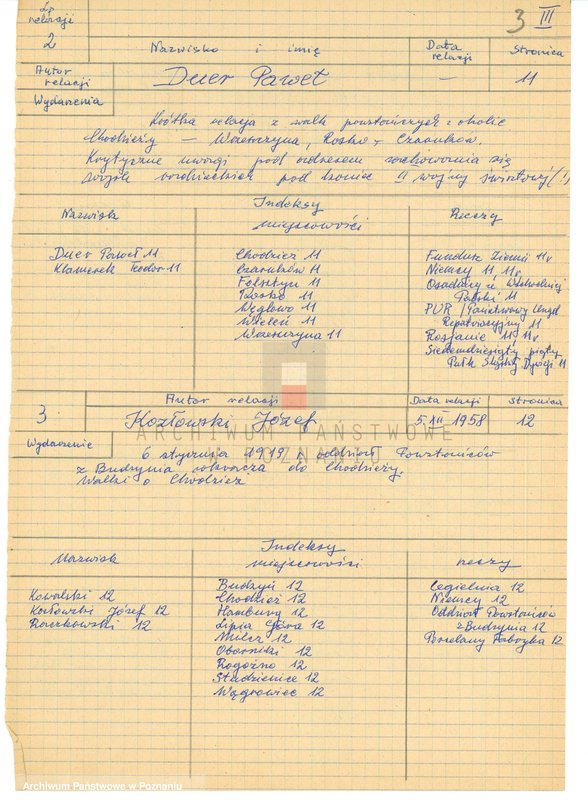 Lp. relacji
3 III
2
Nazwisko i imię
Data relacji
Stronica
Autor relacji
Duer Paweł
—
11
Wydarzenia
Krótka relacja z walk powstańczych z okolic
Chodzieży — Wrzeszczyna, Rosko — Czarnków.
Krytyczne uwagi pod adresem zachowania się
wojsk radzieckich pod koniec II wojny światowej (!)
Indeksy
Nazwiska
miejscowości
Rzeczy
Duer Paweł 11
Klamerek Teodor 11
Chodzież 11
Czarnków 11
Folsztyn 11
Rosko 11
Węglewo 11
Wieleń 11
Wrzeszczyna 11
Fundusz Ziemi 11v
Niemcy 11 11v
Osadnicy z Wschodniej
Polski 11
PUR / Państwowy Urząd
Repatriacyjny 11
Rosjanie 11 11v
Siedemdziesiąty piąty
Pułk Służby 11
3
Autor relacji
Data relacji
Stronica
Kozłowski Józef
5. XII 1958
12
Wydarzenie
6 stycznia 1919 r. oddział Powstańców
z Budzynia wkracza do Chodzieży.
Walki o Chodzież
Indeksy
Nazwisk
miejscowości
rzeczy
Kowalski 12
Kozłowski Józef 12
Raczkowski 12
Budzyń 12
Chodzież 12
Hamburg 12
Lipia Góra 12
Milcz 12
Oborniki 12
Rogoźno 12
Studzieniec 12
Wągrowiec 12
Cegielnia 12
Niemcy 12
Oddział Powstańców
z Budzynia 12
Porcelany Fabryka 12
ARCHIWUM PAŃSTWOWE
W POZNANIU
Archiwum Państwowe w Poznaniu